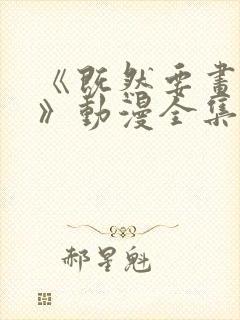 《既然要画
》动漫全集
郝星魁